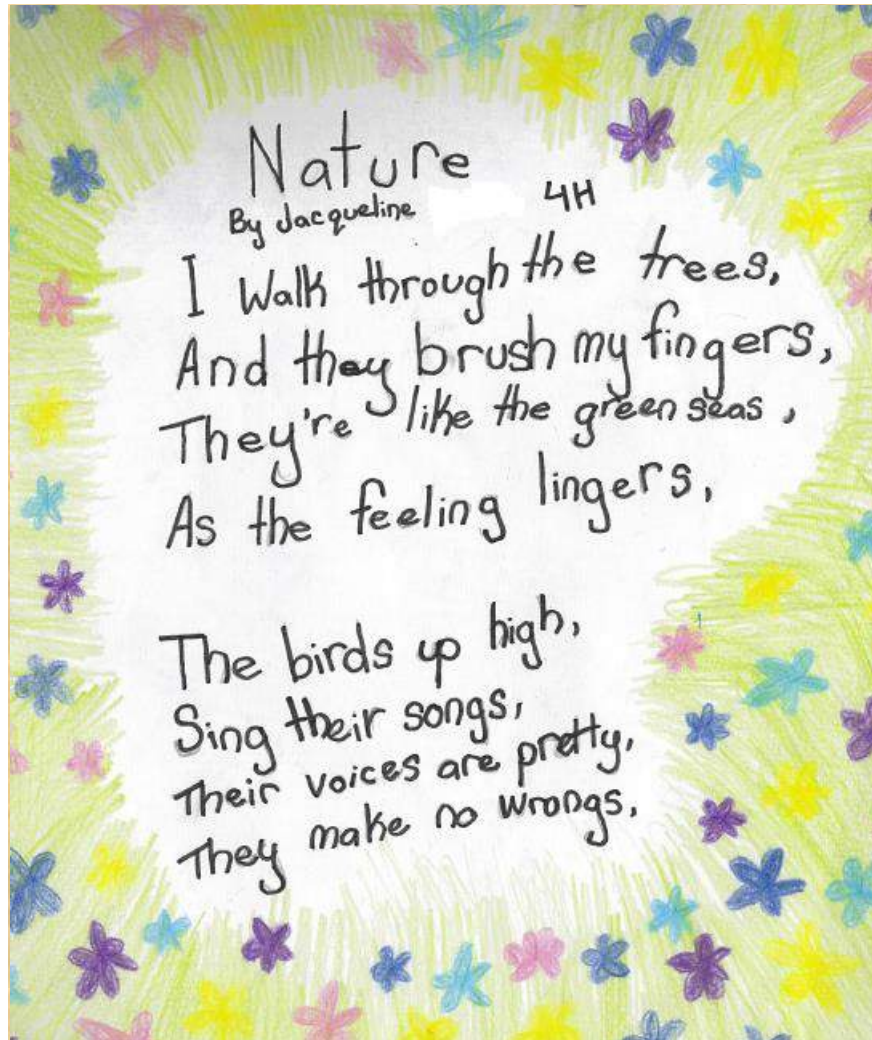 Nature
By Jacqueline 4H
I Walk through the trees,
And they brush my fingers,
They're like the green seas,
As the feeling lingers,
The birds up high,
Sing their songs,
Their voices are pretty,
They make no wrongs,